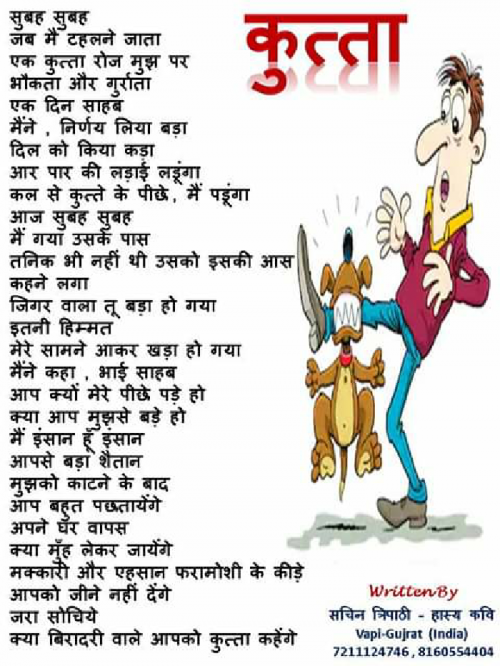 कुत्ता
सुबह सुबह
जब मैं टहलने जाता
एक कुत्ता रोज मुझ पर
भौकता और गुर्राता
एक दिन साहब
मैंने , निर्णय लिया बड़ा
दिल को किया कड़ा
आर पार की लड़ाई लडूंगा
कल से कुत्ते के पीछे , मैं पडूंगा
आज सुबह सुबह
मैं गया उसके पास
तनिक भी नहीं थी उसको इसकी आस
कहने लगा
जिगर वाला तू बड़ा हो गया
इतनी हिम्मत
मेरे सामने आकर खड़ा हो गया
मैंने कहा , भाई साहब
आप क्यों मेरे पीछे पड़े हो
क्या आप मुझसे बड़े हो
मैं इंसान हूँ इंसान
आपसे बड़ा शैतान
मुझको काटने के बाद
आप बहुत पछतायेंगे
अपने घर वापस
क्या मुँह लेकर जायेंगे
मक्कारी और एहसान फरामोशी के कीड़े
आपको जीने नहीं देंगे
जरा सोचिये
क्या बिरादरी वाले आपको कुत्ता कहेंगे
WrittenBy
सचिन त्रिपाठी - हास्य कवि
Vapi-Gujrat (India)
7211124746 , 8160554404